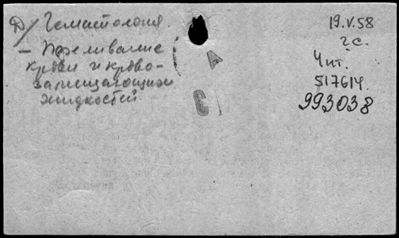 Д/ Гематология
– Переливание
крови и крово-
замещающих
жидкостей
19.V.58
г.с.
Чит.
517614
993038
А
С